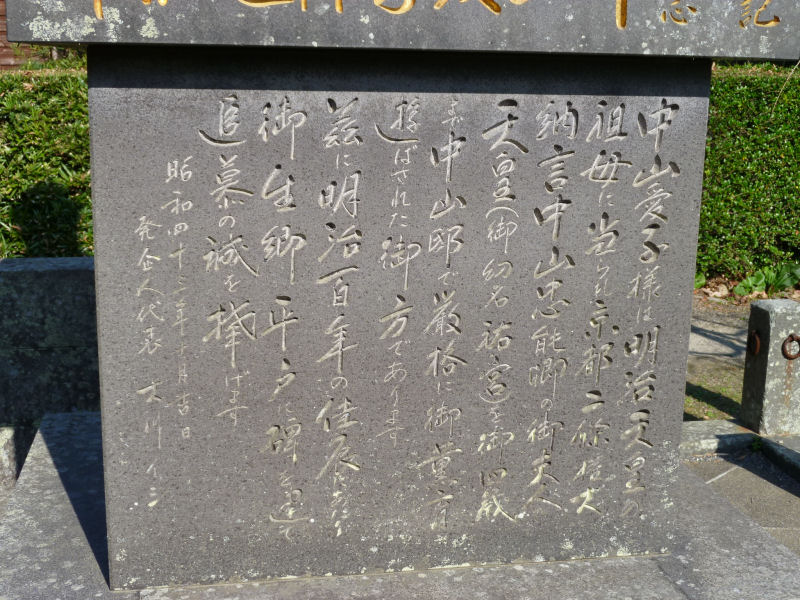 念 記
中山愛子様は明治天皇の
祖母に当られ京都二條権大
納言中山忠能卿の御夫人
天皇(御幼名祐宮)を御四歳
まで中山邸で厳格に御薫育
遊ばされた御方であります
茲に明治百年の佳辰に当り
御生郷平戸に碑を建て
追慕の誠を捧げます
昭和四十三年十月吉日
発企人代表